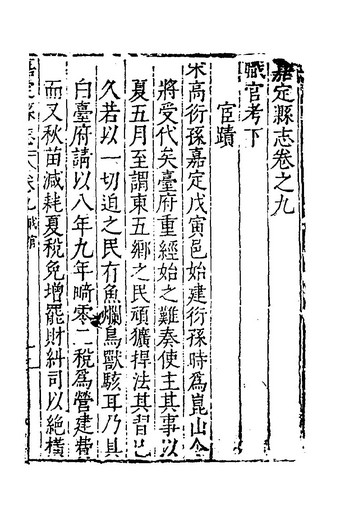 嘉定縣志卷之九
職官考下
宦蹟
宋高衍孫嘉定戊寅邑始建衍孫時爲崑山令
將受代矣臺府重經始之難奏使主其事以
夏五月至謂東五鄉之民頑獷捍法其習已
久若以一切迫之民有魚爛鳥獸駭耳乃具
白臺府請以八年九年畸零二稅爲營建費
而又秋苗減耗夏稅免增罷財糾司以絕橫
嘉定縣志卷九 職官